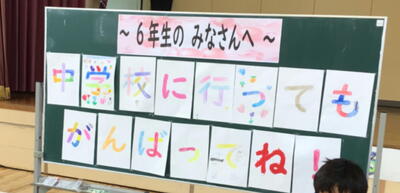 ～６年生の みなさんへ～
中学校に行っても
がんばってね！